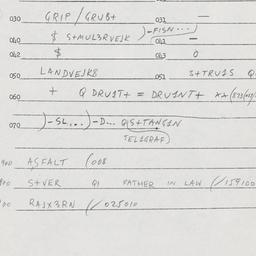 030 GRIP / GRUB+ 032 —
040 $ S+MUL3RVEJK )-FISN... —
042 $ 043 0
050 LANDVEJK8 051 S+TRU1S
060 + Q DRU1T+ = DRU1NT+
070 )-SL...)-D... QS+TANG1N
TEL1GRAF)
ASFALT (008
S+VER Q1 FATHER IN LAW (/159100
RAJX3RN (/025010